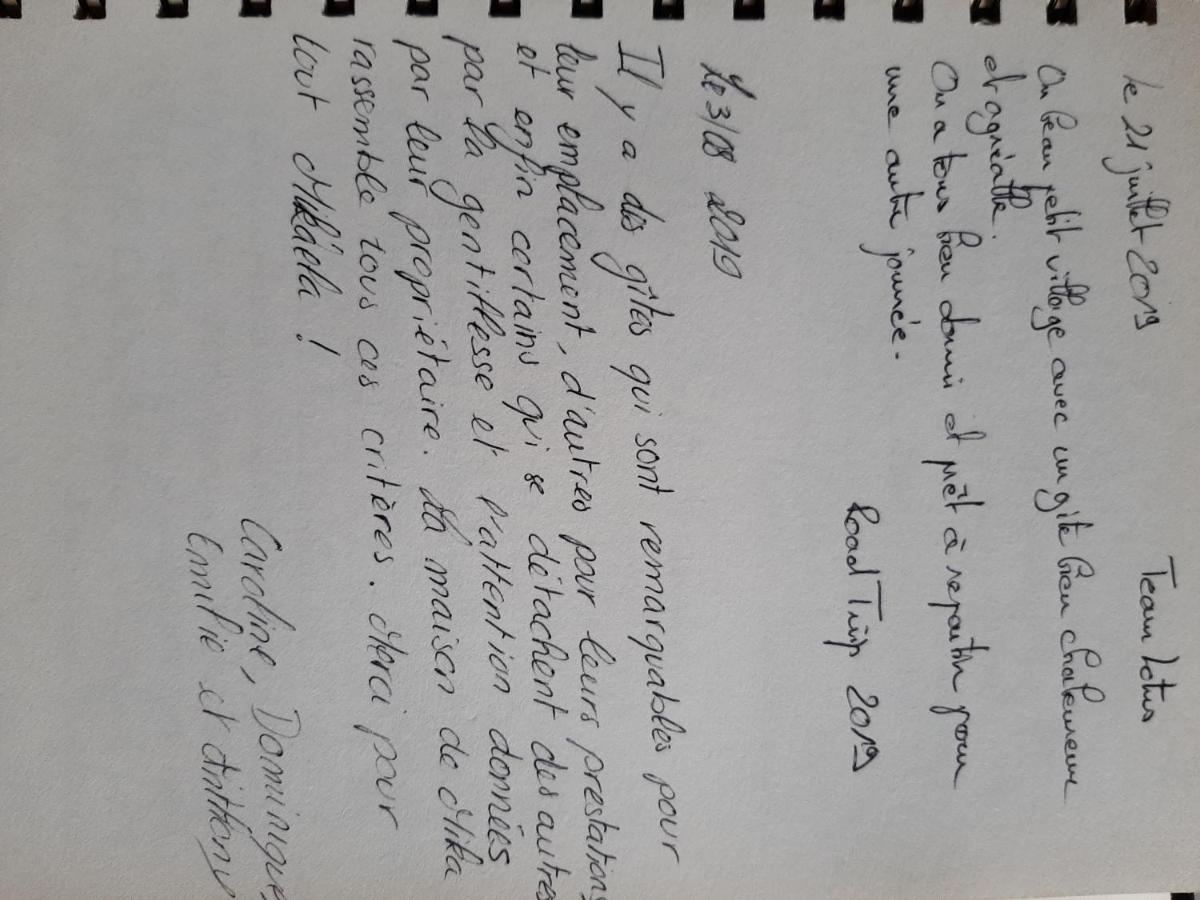 Le 21 juillet 2019 Team Lotus
Un beau petit village avec un gîte bien chaleureux
et agréable.
On a tous bien dormi et prêt à repartir pour
une autre journée.
Road Trip 2019
Le 3/08 2019
Il y a des gîtes qui sont remarquables pour
leur emplacement, d'autres pour leurs prestations
et enfin certains qui se détachent des autres
par la gentillesse et l'attention données
par leur propriétaire. La maison de Mika
rassemble tous ces critères. Merci pour
tout Mikaela !
Caroline, Dominique,
Emilie et Anthony